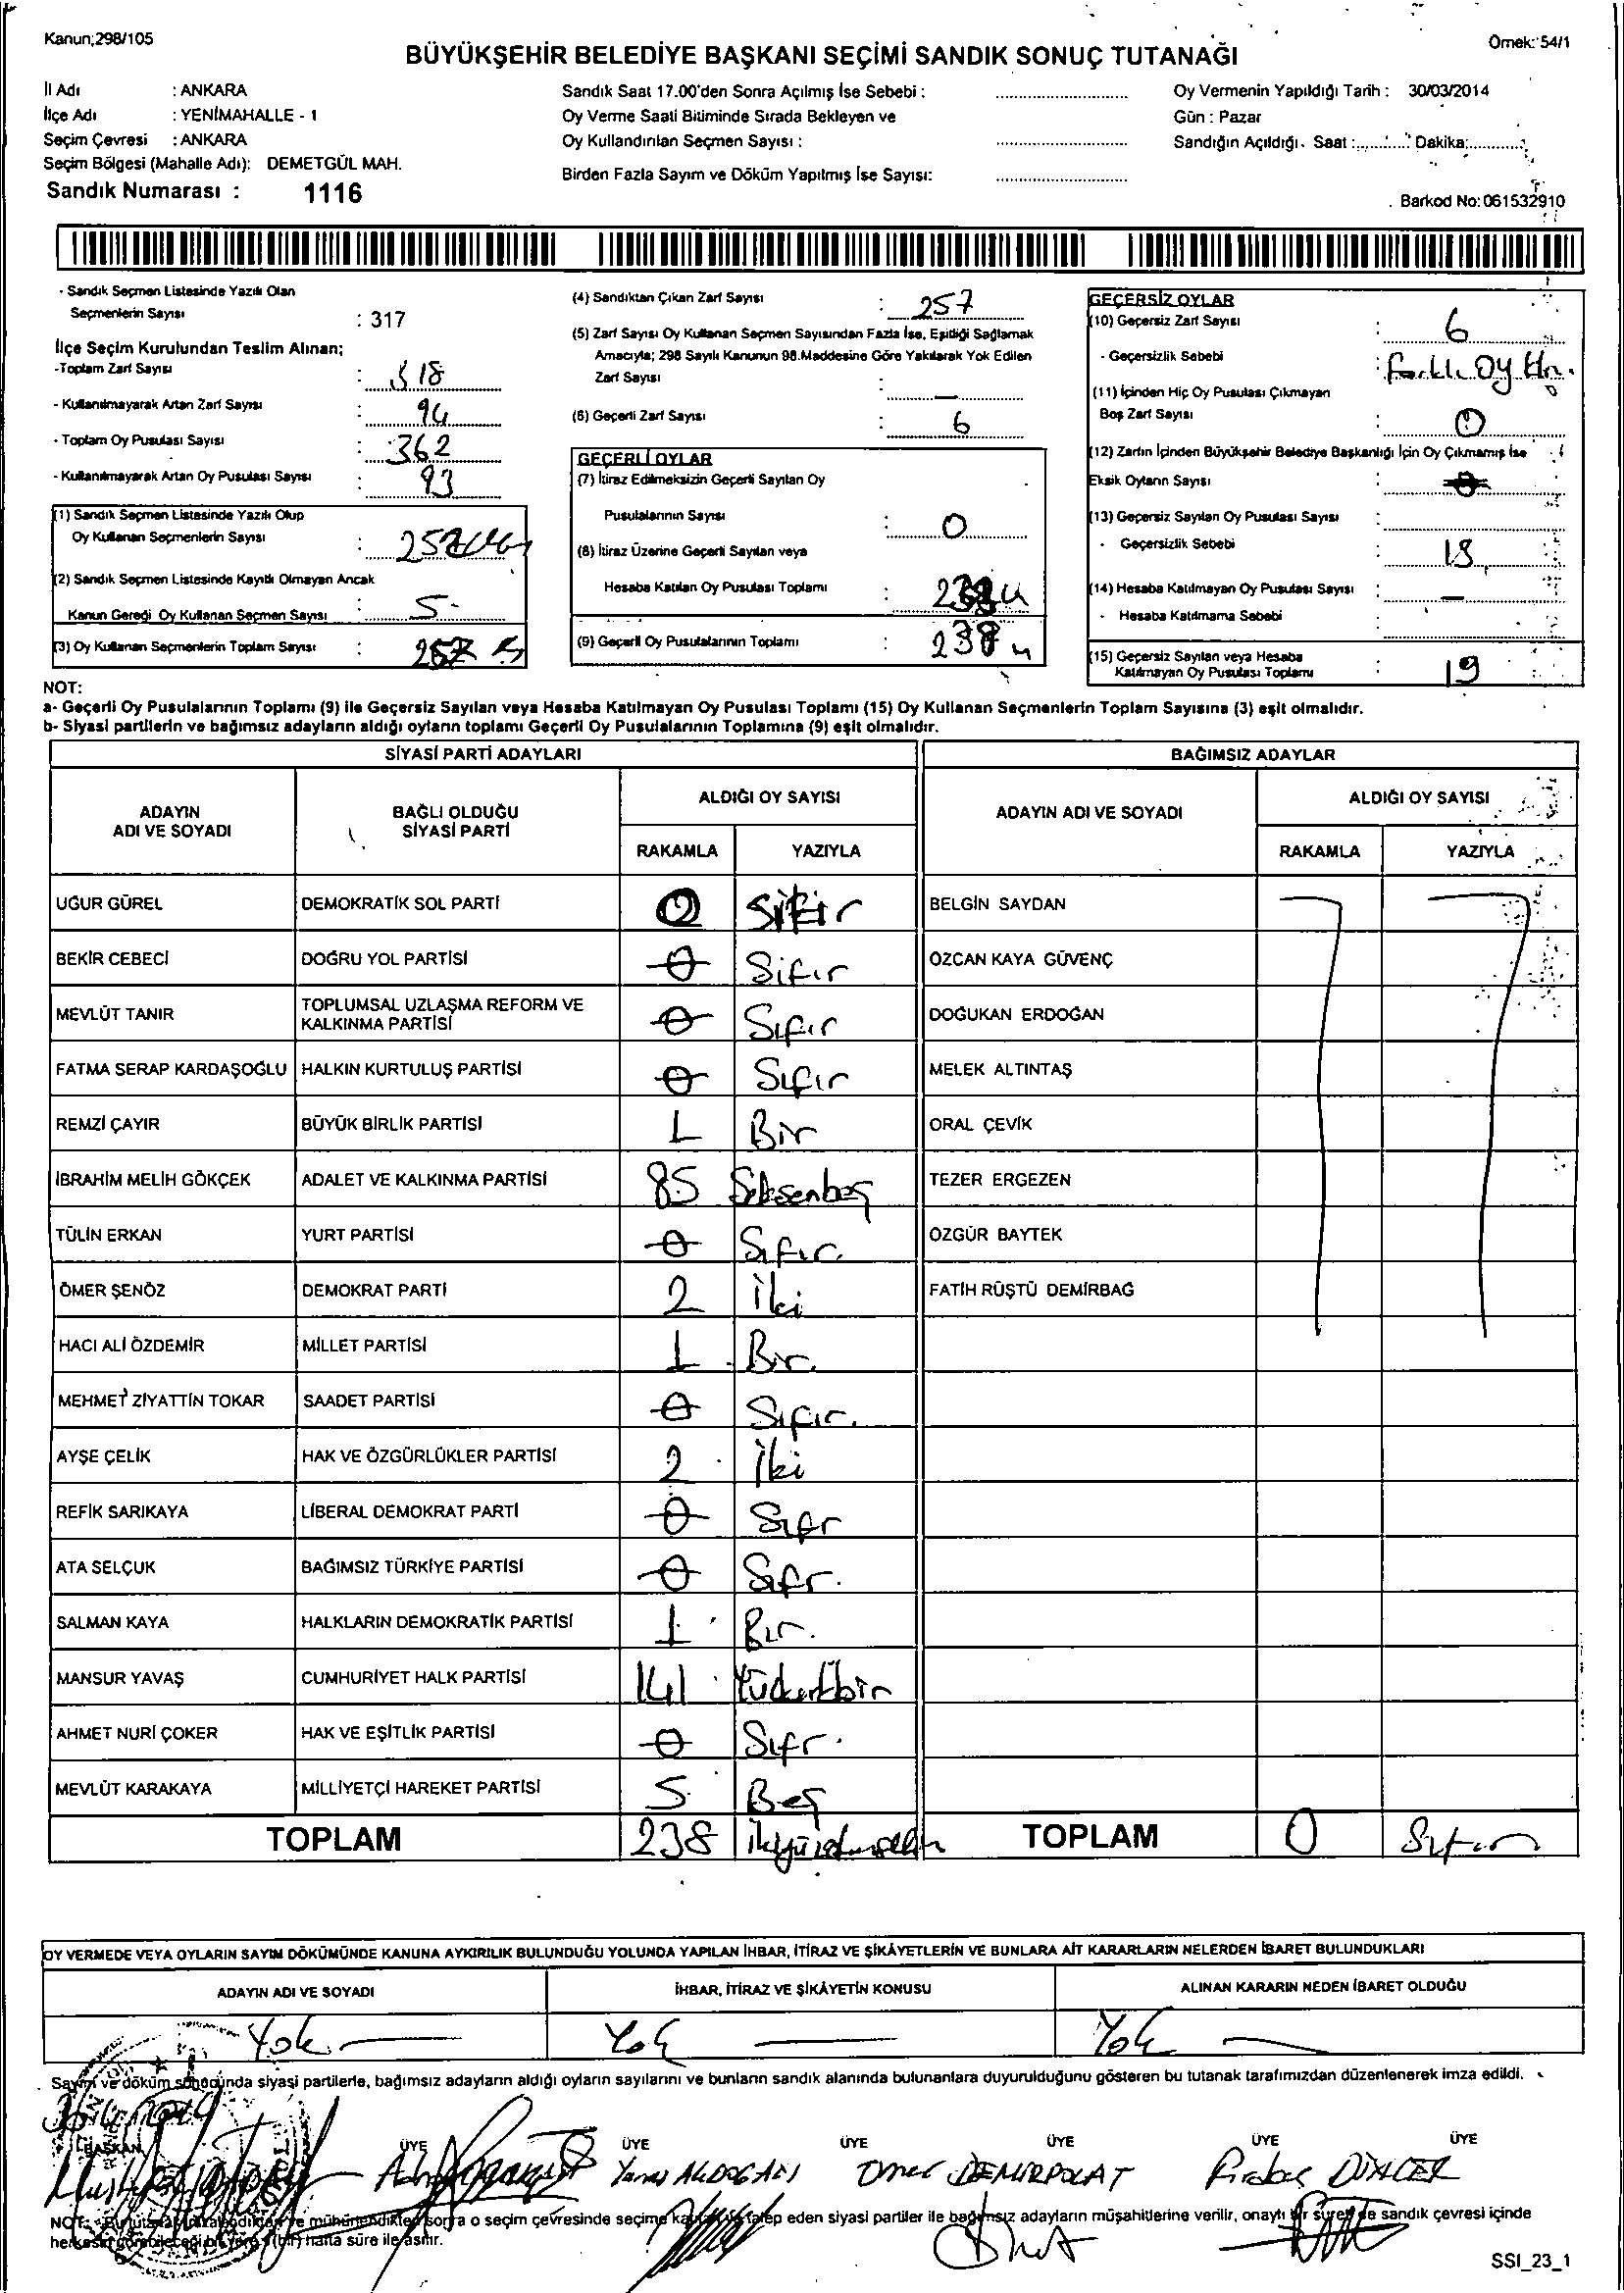 Kanun;298/105
Örnek: 54/1
BÜYÜKŞEHİR BELEDİYE BAŞKANI SEÇİMİ SANDIK SONUÇ TUTANAĞI
İl Adı : ANKARA
İlçe Adı : YENİMAHALLE - 1
Seçim Çevresi : ANKARA
Seçim Bölgesi (Mahalle Adı): DEMETGÜL MAH.
Sandık Numarası : 1116
Sandık Saat 17.00'den Sonra Açılmış İse Sebebi :
Oy Verme Saati Bitiminde Sırada Bekleyen ve
Oy Kullandırılan Seçmen Sayısı :
Birden Fazla Sayım ve Döküm Yapılmış İse Sayısı:
Oy Vermenin Yapıldığı Tarih : 30/03/2014
Gün : Pazar
Sandığın Açıldığı. Saat : Dakika:
Barkod No: 061532910
- Sandık Seçmen Listesinde Yazılı Olan
Seçmenlerin Sayısı : 317
İlçe Seçim Kurulundan Teslim Alınan;
-Toplam Zarf Sayısı : 318
- Kullanılmayarak Artan Zarf Sayısı : 94
- Toplam Oy Pusulası Sayısı : 362
- Kullanılmayarak Artan Oy Pusulası Sayısı : 93
(1) Sandık Seçmen Listesinde Yazılı Olup
Oy Kullanan Seçmenlerin Sayısı :
(2) Sandık Seçmen Listesinde Kayıtlı Olmayan Ancak
Kanun Gereği Oy Kullanan Seçmen Sayısı : 5
(3) Oy Kullanan Seçmenlerin Toplam Sayısı : 257
(4) Sandıktan Çıkan Zarf Sayısı : 257
(5) Zarf Sayısı Oy Kullanan Seçmen Sayısından Fazla İse, Eşitliği Sağlamak
Amacıyla; 298 Sayılı Kanunun 98.Maddesine Göre Yakılarak Yok Edilen
Zarf Sayısı : —
(6) Geçerli Zarf Sayısı : 6
GEÇERLİ OYLAR
(7) İtiraz Edilmeksizin Geçerli Sayılan Oy
Pusulalarının Sayısı : 0
(8) İtiraz Üzerine Geçerli Sayılan veya
Hesaba Katılan Oy Pusulası Toplamı : 238
(9) Geçerli Oy Pusulalarının Toplamı : 238
GEÇERSİZ OYLAR
(10) Geçersiz Zarf Sayısı : 6
- Geçersizlik Sebebi : Farklı Oy
(11) İçinden Hiç Oy Pusulası Çıkmayan
Boş Zarf Sayısı : 0
(12) Zarfın İçinden Büyükşehir Belediye Başkanlığı İçin Oy Çıkmamış İse
Eksik Oyların Sayısı : 0
(13) Geçersiz Sayılan Oy Pusulası Sayısı :
- Geçersizlik Sebebi
(14) Hesaba Katılmayan Oy Pusulası Sayısı : —
- Hesaba Katılmama Sebebi
(15) Geçersiz Sayılan veya Hesaba
Katılmayan Oy Pusulası Toplamı : 19
NOT:
a- Geçerli Oy Pusulalarının Toplamı (9) ile Geçersiz Sayılan veya Hesaba Katılmayan Oy Pusulası Toplamı (15) Oy Kullanan Seçmenlerin Toplam Sayısına (3) eşit olmalıdır.
b- Siyasi partilerin ve bağımsız adayların aldığı oyların toplamı Geçerli Oy Pusulalarının Toplamına (9) eşit olmalıdır.
SİYASİ PARTİ ADAYLARI
BAĞIMSIZ ADAYLAR
ADAYIN ADI VE SOYADI
BAĞLI OLDUĞU SİYASİ PARTİ
ALDIĞI OY SAYISI
RAKAMLA YAZIYLA
ADAYIN ADI VE SOYADI
ALDIĞI OY SAYISI
RAKAMLA YAZIYLA
UĞUR GÜREL DEMOKRATİK SOL PARTİ 0 Sıfır BELGİN SAYDAN
BEKİR CEBECİ DOĞRU YOL PARTİSİ 0 Sıfır ÖZCAN KAYA GÜVENÇ
MEVLÜT TANIR TOPLUMSAL UZLAŞMA REFORM VE KALKINMA PARTİSİ 0 Sıfır DOĞUKAN ERDOĞAN
FATMA SERAP KARDAŞOĞLU HALKIN KURTULUŞ PARTİSİ 0 Sıfır MELEK ALTINTAŞ
REMZİ ÇAYIR BÜYÜK BİRLİK PARTİSİ 1 Bir ORAL ÇEVİK
İBRAHİM MELİH GÖKÇEK ADALET VE KALKINMA PARTİSİ 85 Seksenbeş TEZER ERGEZEN
TÜLİN ERKAN YURT PARTİSİ 0 Sıfır. ÖZGÜR BAYTEK
ÖMER ŞENÖZ DEMOKRAT PARTİ 2 İki FATİH RÜŞTÜ DEMİRBAĞ
HACI ALİ ÖZDEMİR MİLLET PARTİSİ 1 Bir.
MEHMET ZİYATTİN TOKAR SAADET PARTİSİ 0 Sıfır.
AYŞE ÇELİK HAK VE ÖZGÜRLÜKLER PARTİSİ 2 İki
REFİK SARIKAYA LİBERAL DEMOKRAT PARTİ 0 Sıfr
ATA SELÇUK BAĞIMSIZ TÜRKİYE PARTİSİ 0 Sıfr.
SALMAN KAYA HALKLARIN DEMOKRATİK PARTİSİ 1 Bir.
MANSUR YAVAŞ CUMHURİYET HALK PARTİSİ 141 Yüzkırkbir
AHMET NURİ ÇOKER HAK VE EŞİTLİK PARTİSİ 0 Sıfr.
MEVLÜT KARAKAYA MİLLİYETÇİ HAREKET PARTİSİ 5 Beş
TOPLAM 238 TOPLAM 0 Sıfır
OY VERMEDE VEYA OYLARIN SAYIM DÖKÜMÜNDE KANUNA AYKIRILIK BULUNDUĞU YOLUNDA YAPILAN İHBAR, İTİRAZ VE ŞİKÂYETLERİN VE BUNLARA AİT KARARLARIN NELERDEN İBARET BULUNDUKLARI
ADAYIN ADI VE SOYADI İHBAR, İTİRAZ VE ŞİKÂYETİN KONUSU ALINAN KARARIN NEDEN İBARET OLDUĞU
Yok — Yok — Yok —
Sayım ve döküm sonucunda siyasi partilerle, bağımsız adayların aldığı oyların sayılarını ve bunların sandık alanında bulunanlara duyurulduğunu gösteren bu tutanak tarafımızdan düzenlenerek imza edildi.
BAŞKAN ÜYE ÜYE ÜYE ÜYE ÜYE ÜYE
Ömer DEMİRPOLAT
NOT: Bu tutanak ve mühürlendikten sonra o seçim çevresinde seçime katılan ve talep eden siyasi partiler ile bağımsız adayların müşahitlerine verilir, onaylı bir sureti de sandık çevresi içinde
herkesin görebileceği bir yere 1 (bir) hafta süre ile asılır.
SSI_23_1